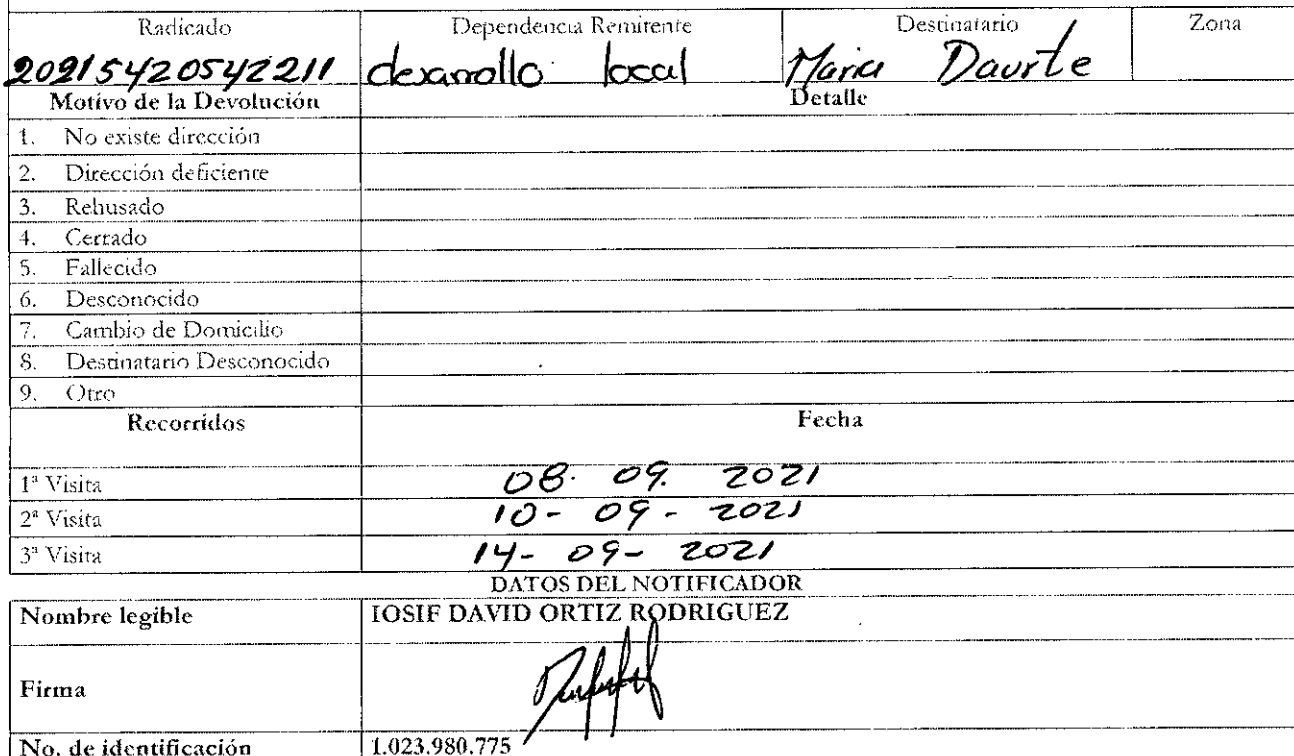 Radicado Dependencia Remitente Destinatario Zona
20215420542211 desarrollo local Maria Daurte
Motivo de la Devolución Detalle
1. No existe dirección
2. Dirección deficiente
3. Rehusado
4. Cerrado
5. Fallecido
6. Desconocido
7. Cambio de Domicilio
8. Destinatario Desconocido
9. Otro
Recorridos Fecha
1ª Visita 08. 09. 2021
2ª Visita 10- 09 - 2021
3ª Visita 14- 09- 2021
DATOS DEL NOTIFICADOR
Nombre legible IOSIF DAVID ORTIZ RODRIGUEZ
Firma
No. de identificación 1.023.980.775